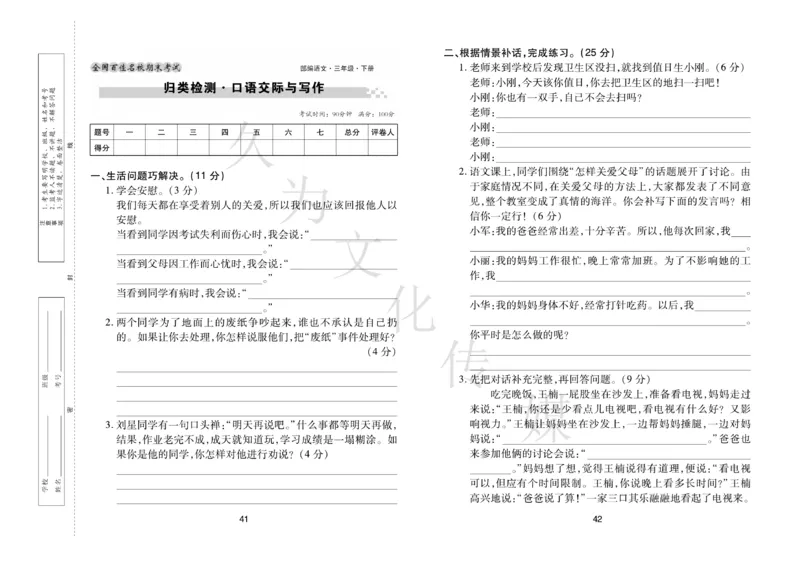 全国百佳名校期末考试
部编语文·三年级·下册
归类检测·口语交际与写作
考试时间：90分钟 满分：100分
题号 一 二 三 四 五 六 七 总分 评卷人
得分
一、生活问题巧解决。（11分）
1. 学会安慰。（3分）
我们每天都在享受着别人的关爱，所以我们也应该回报他人以
安慰。
当看到同学因考试失利而伤心时，我会说：“
。”
当看到父母因工作而心忧时，我会说：“
。”
当看到同学有病时，我会说：“
。”
2. 两个同学为了地面上的废纸争吵起来，谁也不承认是自己扔
的。如果让你去处理，你怎样说服他们，把“废纸”事件处理好？
（4分）
3. 刘星同学有一句口头禅：“明天再说吧。”什么事都等明天再做，
结果，作业老完不成，成天就知道玩，学习成绩是一塌糊涂。如
果你是他的同学，你怎样对他进行劝说？（4分）
41
二、根据情景补话，完成练习。（25分）
1. 老师来到学校后发现卫生区没扫，就找到值日生小刚。（6分）
老师：小刚，今天该你值日，你去把卫生区的地扫一扫吧！
小刚：你也有一双手，自己不会去扫吗？
老师：
小刚：
老师：
小刚：
2. 语文课上，同学们围绕“怎样关爱父母”的话题展开了讨论。由
于家庭情况不同，在关爱父母的方法上，大家都发表了不同意
见，整个教室变成了真情的海洋。你会补写下面的发言吗？相
信你一定行！（6分）
小军：我的爸爸经常出差，十分辛苦。所以，他每次回家，我
。
小丽：我的妈妈工作很忙，晚上常常加班。为了不影响她的工
作，我
。
小华：我的妈妈身体不好，经常打针吃药。以后，我
。
你平时是怎么做的呢？
3. 先把对话补充完整，再回答问题。（9分）
吃完晚饭，王楠一屁股坐在沙发上，准备看电视，妈妈走过
来说：“王楠，你还是少看点儿电视吧，看电视有什么好？又影
响视力。”王楠让妈妈坐在沙发上，一边帮妈妈捶腿，一边对妈
妈说：“ 。”爸爸也
来参加他俩的讨论会说：“
。”妈妈想了想，觉得王楠说得有道理，便说：“看电视
可以，但应有个时间限制。王楠，你说晚上看多长时间？”王楠
高兴地说：“爸爸说了算！”一家三口其乐融融地看起了电视来。
42
注意事项
1.考生要写明学校、班级、姓名和考号
2.监考人不读题、不讲题、不解答问题
3.字迹清楚、卷面整洁
学校
班级
姓名
考号
密
封
线
久为文化传媒